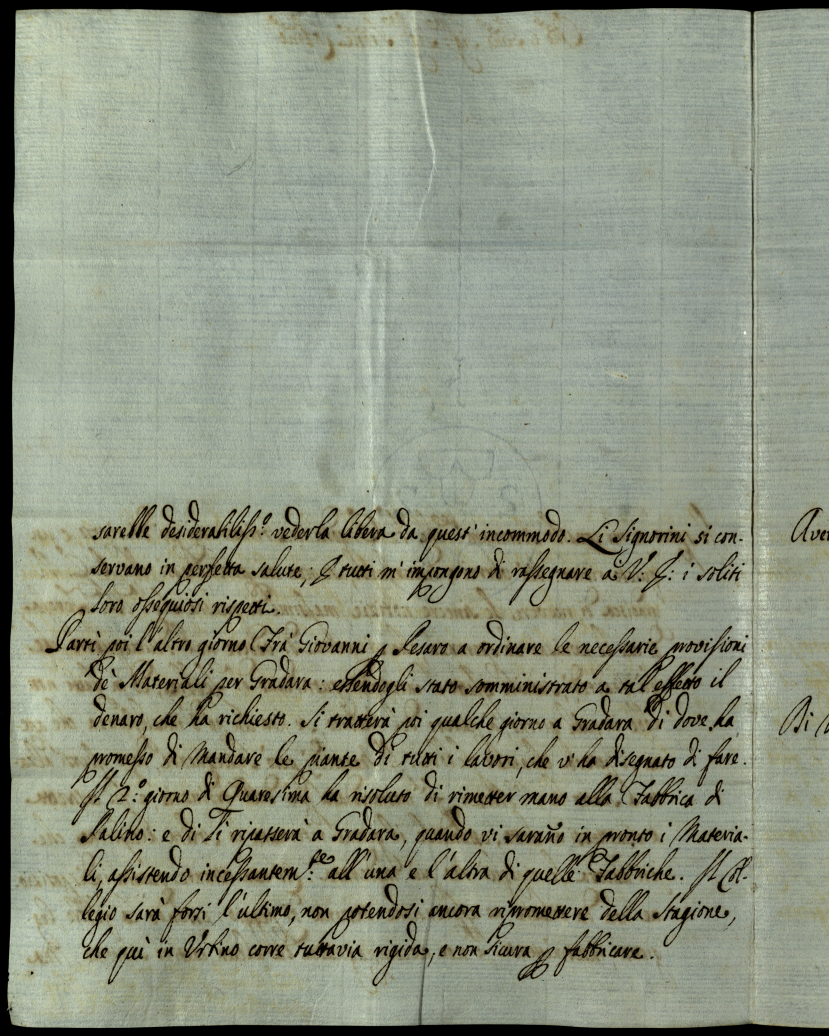 sarebbe desiderabiliss.º vederla libera da quest'incommodo. Li Signorini si con-
servano in perfetta salute; E tutti m'impongono di rassegnare a V: E: i soliti
loro ossequiosi rispetti.
Partì poi l'altro giorno Frà Giovanni p Pesaro a ordinare le necessarie provisioni
de' Materiali per Gradara: essendogli stato somministrato a tal'effetto il
denaro, che ha richiesto. Si tratterà poi qualche giorno a Gradara di dove ha
promesso di mandare le piante di tutti i lavori, che v'ha disegnato di fare.
Il 2.º giorno di Quaresima ha risoluto di rimetter mano alla Fabbrica di
Palino: e di Lì ripasserà a Gradara, quando vi saranno in pronto i Materia-
li, assistendo incessantem.te all'una e l'altra di quelle Fabbriche. Il Col-
legio sarà forsi l'ultimo, non potendosi ancora ripromettere della Stagione,
che quì in Urbino corre tuttavia rigida, e non sicura p fabbricare.
Aver
Di